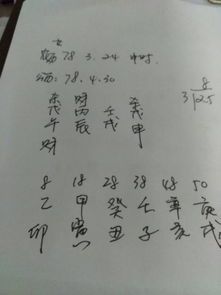 女
农历 78 3.24 申时.
公历: 78.4.30
8
3 25
杀 财 杀
戊 丙 壬 戊
午 辰 戌 申
财
8 18 28 38 48 50
乙 甲 癸 壬 辛 庚
卯 寅 丑 子 亥 戌